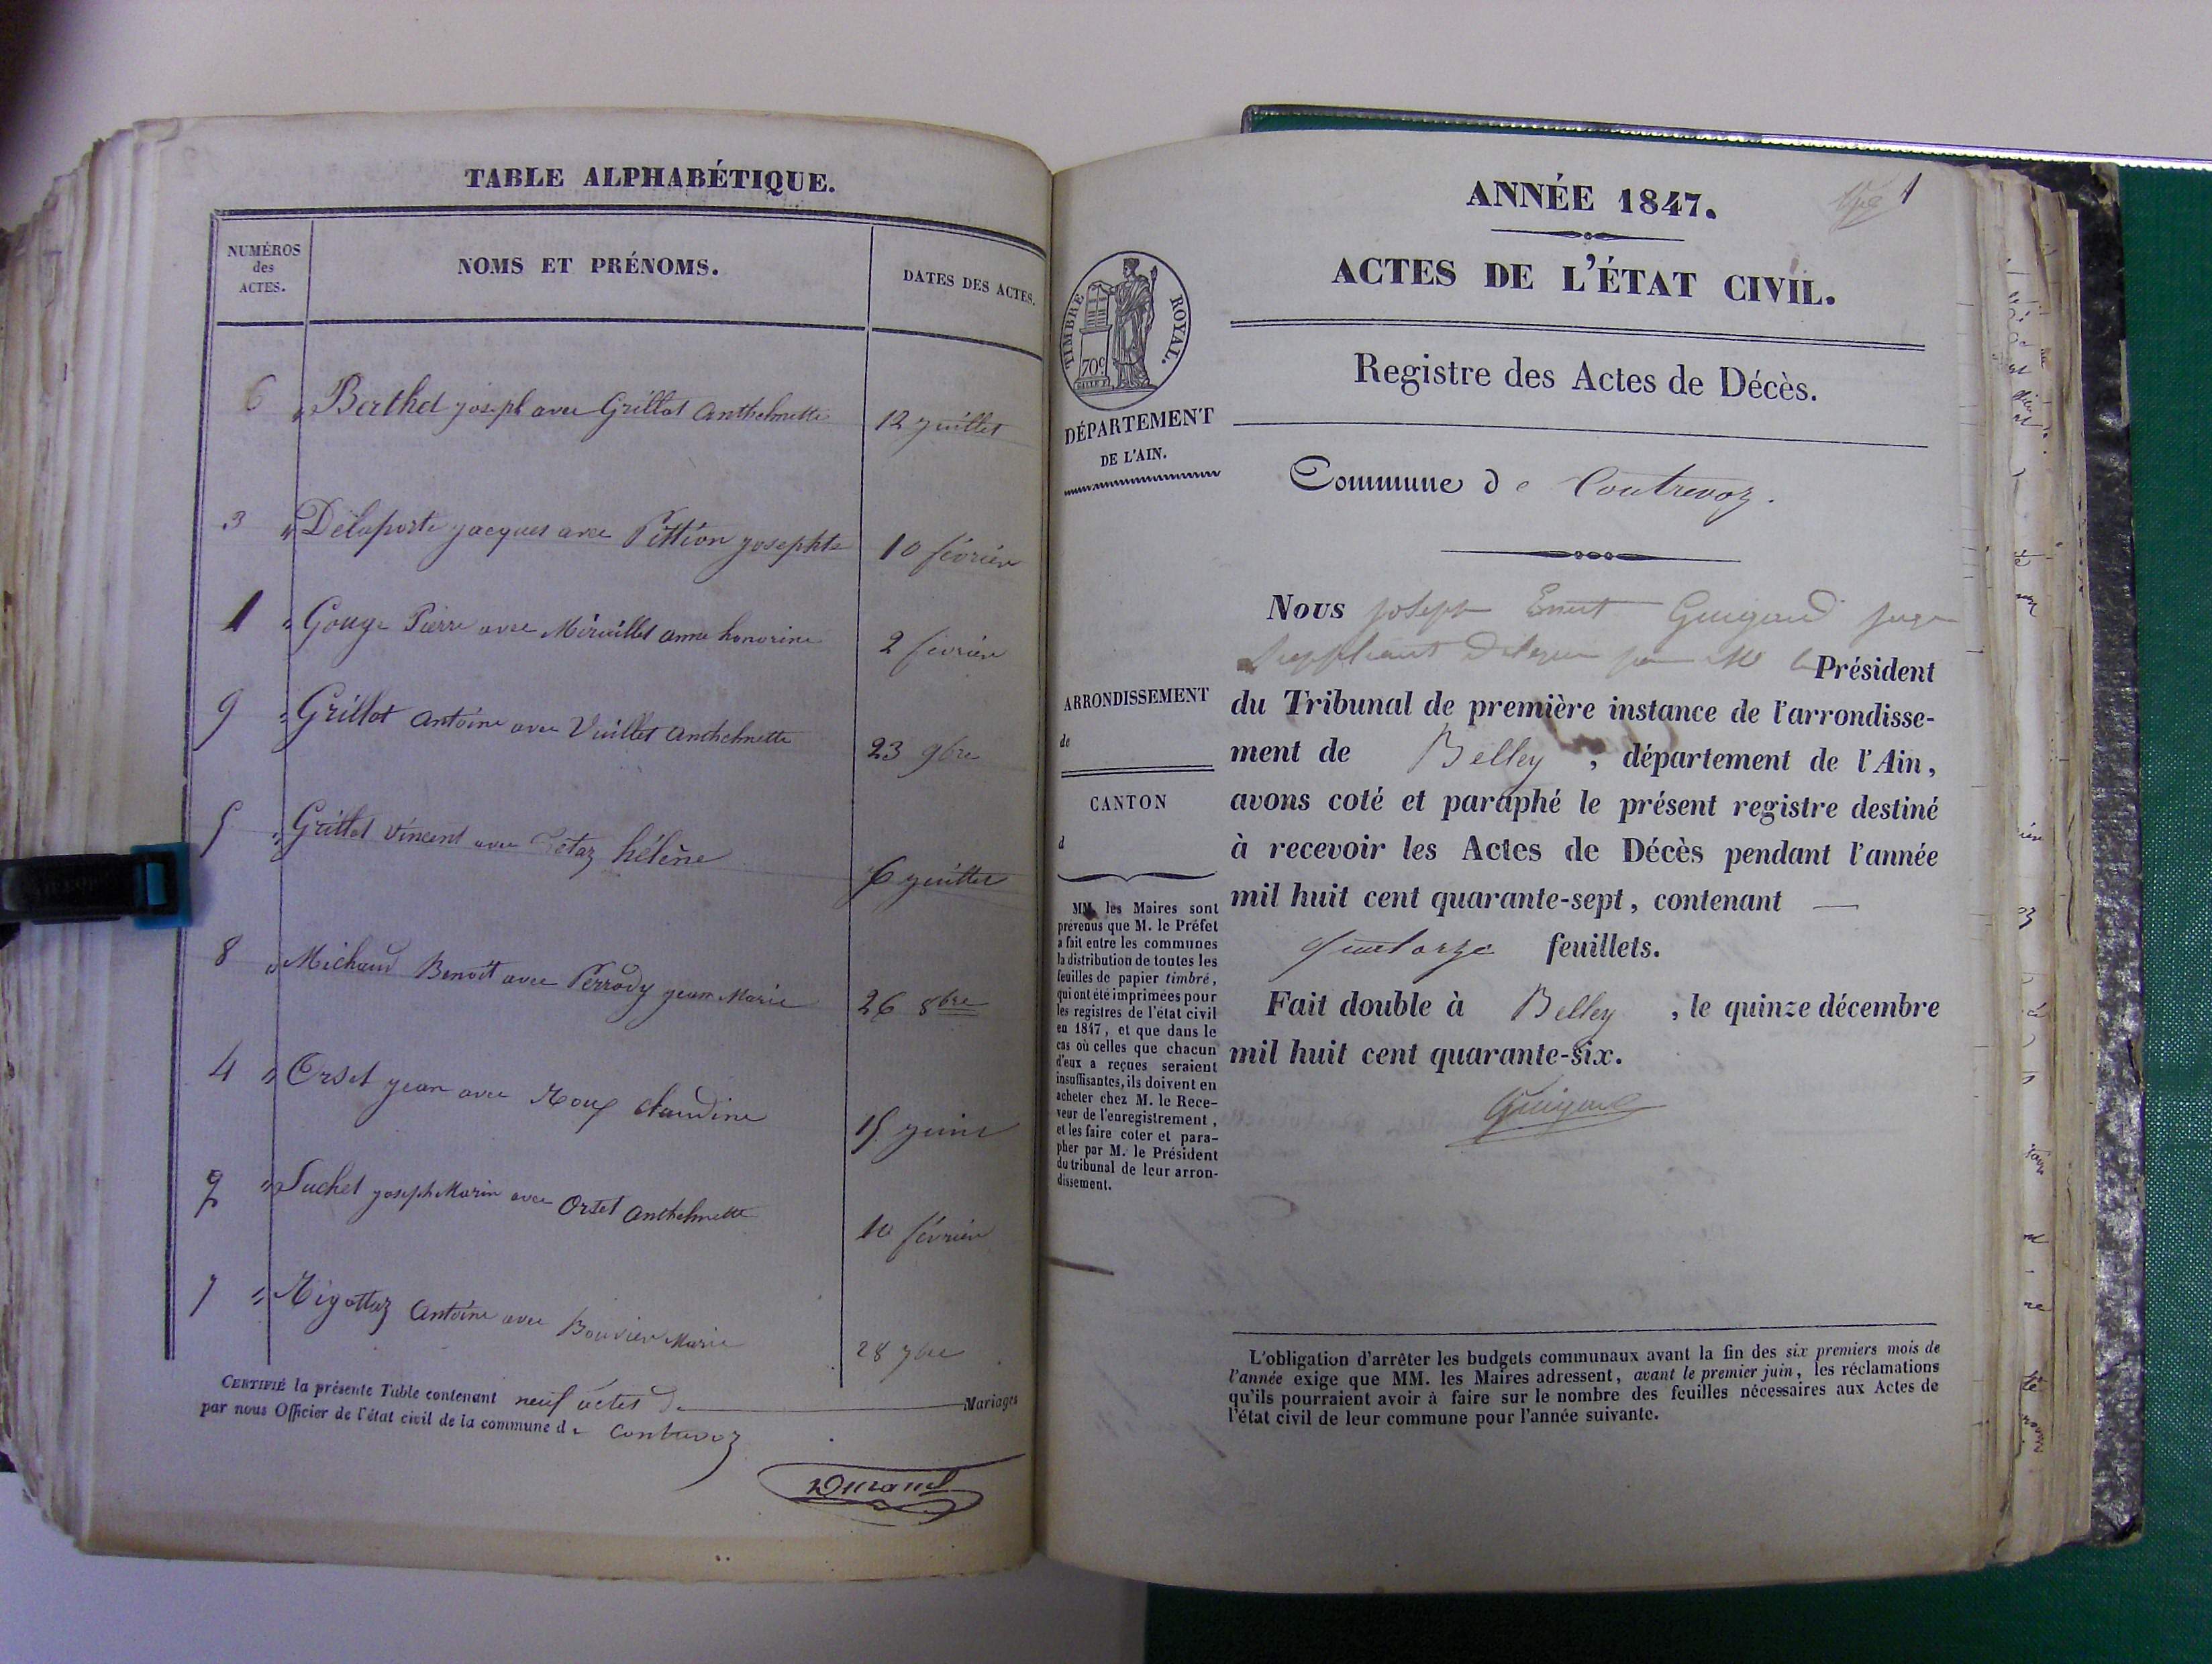 TABLE ALPHABÉTIQUE.
NUMÉROS
des
ACTES.
NOMS ET PRÉNOMS.
DATES DES ACTES.
6 " Berthet joseph avec Grillot Anthelmette 12 juillet
3 " Delaporte jacques avec Pittion josephte 10 février
1 " Gouge Pierre avec anne honorine 2 février
9 " Grillot Antoine avec Vuillet Anthelmette 23 9bre
5 " Grillot Vincent avec hélène 6 juillet
8 " Michaud Benoit avec Perrody jean Marie 26 8bre
4 " Orset jean avec Roux claudine 15 juin
2 " Suchet joseph Marin avec Orset Anthelmette 10 février
7 " Rigottaz Antoine avec Bouvier Marie 28 7bre
CERTIFIÉ la présente Table contenant neuf actes de Mariages
par nous Officier de l'état civil de la commune de Contrevoz
Durand
1
ANNÉE 1847.
ACTES DE L'ÉTAT CIVIL.
TIMBRE ROYAL.
70c
Registre des Actes de Décès.
DÉPARTEMENT
DE L'AIN.
Commune de Contrevoz.
Nous joseph Guigard juge
suppléant par Mr le Président
ARRONDISSEMENT
de
du Tribunal de première instance de l'arrondisse-
ment de Belley, département de l'Ain,
CANTON
d
avons coté et paraphé le présent registre destiné
à recevoir les Actes de Décès pendant l'année
mil huit cent quarante-sept, contenant —
quatorze feuillets.
Fait double à Belley, le quinze décembre
mil huit cent quarante-six.
Guigard
MM. les Maires sont
prévenus que M. le Préfet
a fait entre les communes
la distribution de toutes les
feuilles de papier timbré,
qui ont été imprimées pour
les registres de l'état civil
en 1847, et que dans le
cas où celles que chacun
d'eux a reçues seraient
insuffisantes, ils doivent en
acheter chez M. le Rece-
veur de l'enregistrement,
et les faire coter et para-
pher par M. le Président
du tribunal de leur arron-
dissement.
L'obligation d'arrêter les budgets communaux avant la fin des six premiers mois de
l'année exige que MM. les Maires adressent, avant le premier juin, les réclamations
qu'ils pourraient avoir à faire sur le nombre des feuilles nécessaires aux Actes de
l'état civil de leur commune pour l'année suivante.